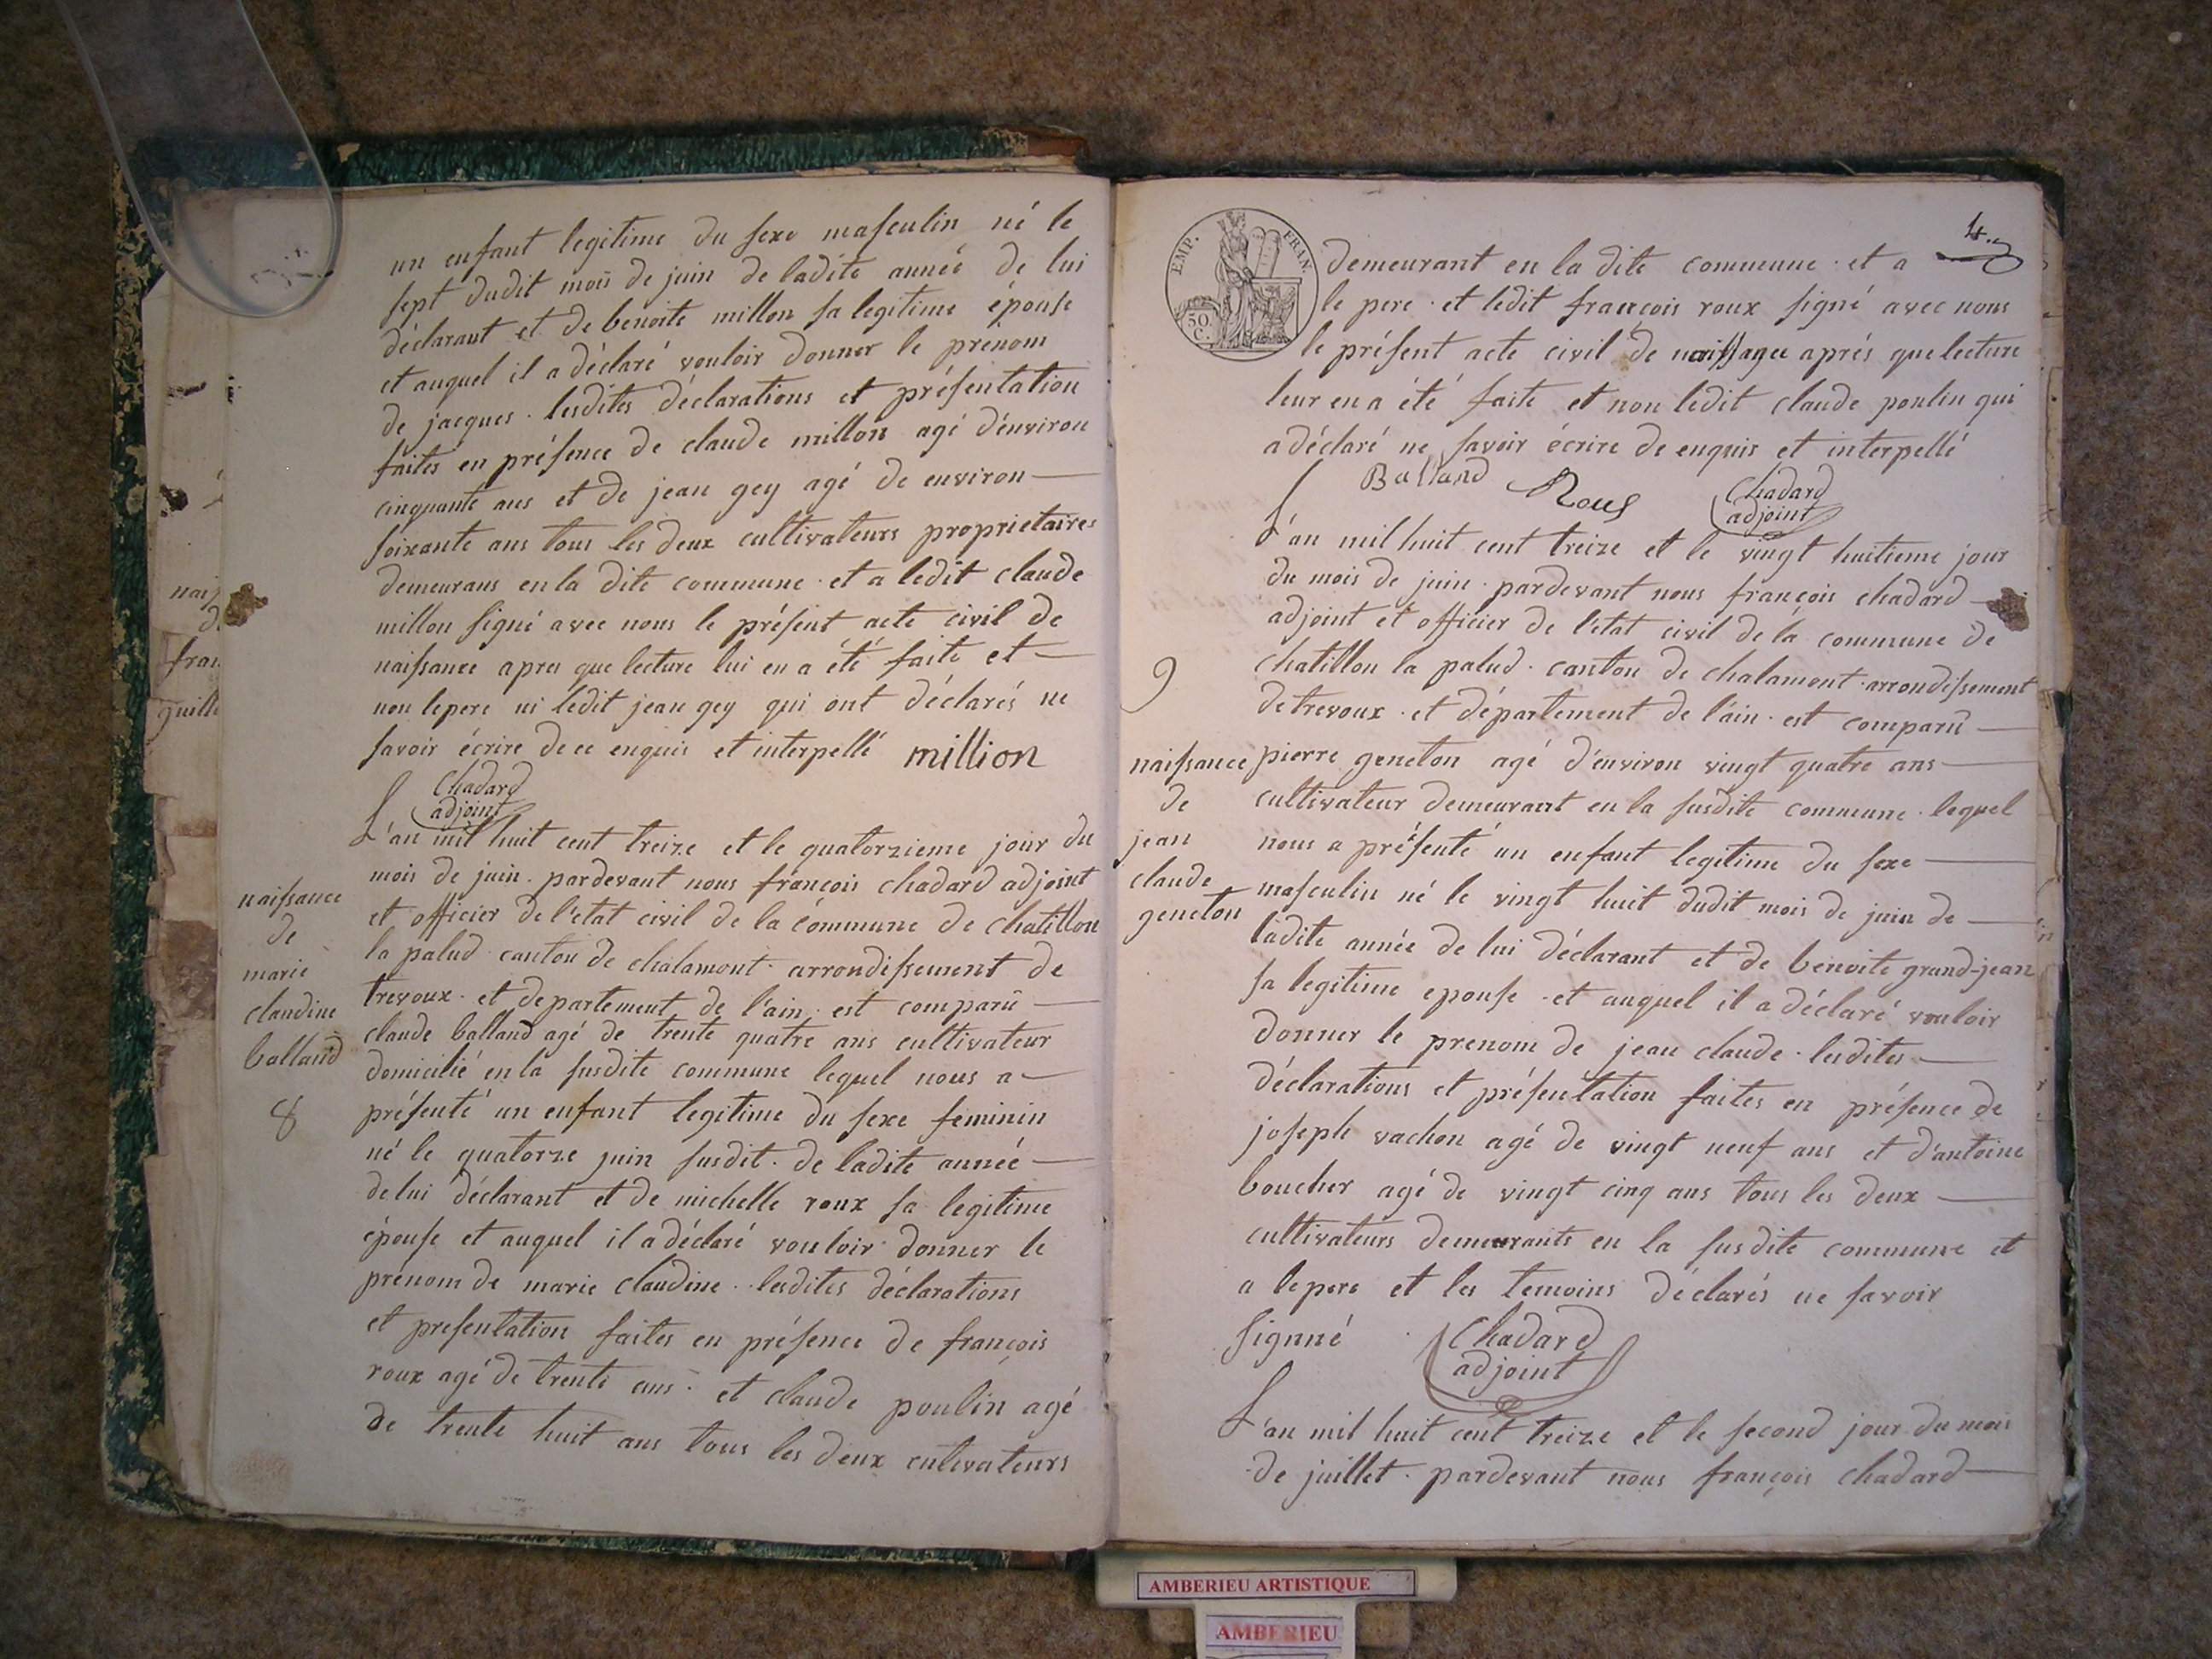 un enfant legitime du sexe masculin né le
sept dudit mois de juin de ladite année de lui
déclarant et de benoite millon sa legitime épouse
et auquel il a déclaré vouloir donner le prénom
de jacques. lesdites déclarations et présentation
faites en présence de claude millon agé d'environ
cinquante ans et de jean gey agé de environ
soixante ans tous les deux cultivateurs proprietaires
demeurans en la dite commune. et a ledit claude
millon signé avec nous le présent acte civil de
naissance apres que lecture lui en a été faite et
non le pere ni ledit jean gey qui ont déclarés ne
savoir écrire de ce enquis et interpellé million
Chadard
adjoint
L'an mil huit cent treize et le quatorzieme jour du
mois de juin. pardevant nous françois chadard adjoint
et officier de l'etat civil de la commune de chatillon
la palud. canton de chalamont. arrondissement de
trevoux. et departement de l'ain. est comparû
claude balland agé de trente quatre ans cultivateur
domicilié en la susdite commune lequel nous a
présenté un enfant legitime du sexe feminin
né le quatorze juin susdit. de ladite année
de lui déclarant et de michelle roux sa legitime
épouse et auquel il a déclaré vouloir donner le
prénom de marie claudine. lesdites déclarations
et presentation faites en présence de françois
roux agé de trente ans. et claude poulin agé
de trente huit ans tous les deux cultivateurs
naissance
de
marie
claudine
balland
8
nais
de
fran
guill
EMP. FRAN.
50.
C.
4.
demeurant en la dite commune. et a
le pere. et ledit françois roux signé avec nous
le présent acte civil de naissance aprés que lecture
leur en a été faite et non ledit claude poulin qui
a déclaré ne savoir écrire de enquis et interpellé
Balland Rous Chadard
adjoint
L'an mil huit cent treize et le vingt huitieme jour
du mois de juin. pardevant nous françois chadard
adjoint et officier de l'etat civil de la commune de
chatillon la palud. canton de chalamont. arrondissement
de trevoux. et département de l'ain. est comparû
pierre geneton agé d'environ vingt quatre ans
cultivateur demeurant en la susdite commune. lequel
nous a présenté un enfant legitime du sexe
masculin né le vingt huit dudit mois de juin de
ladite année de lui déclarant et de benoite grand-jean
sa legitime epouse. et auquel il a déclaré vouloir
donner le prenom de jean claude. lesdites
déclarations et présentation faites en présence de
joseph vachon agé de vingt neuf ans et d'antoine
boucher agé de vingt cinq ans tous les deux
cultivateurs demeurants en la susdite commune et
a le pere et les temoins déclarés ne savoir
signné Chadard
adjoint
L'an mil huit cent treize et le second jour du mois
de juillet. pardevant nous françois chadard
9
naissance
de
jean
claude
geneton
AMBERIEU ARTISTIQUE
AMBERIEU